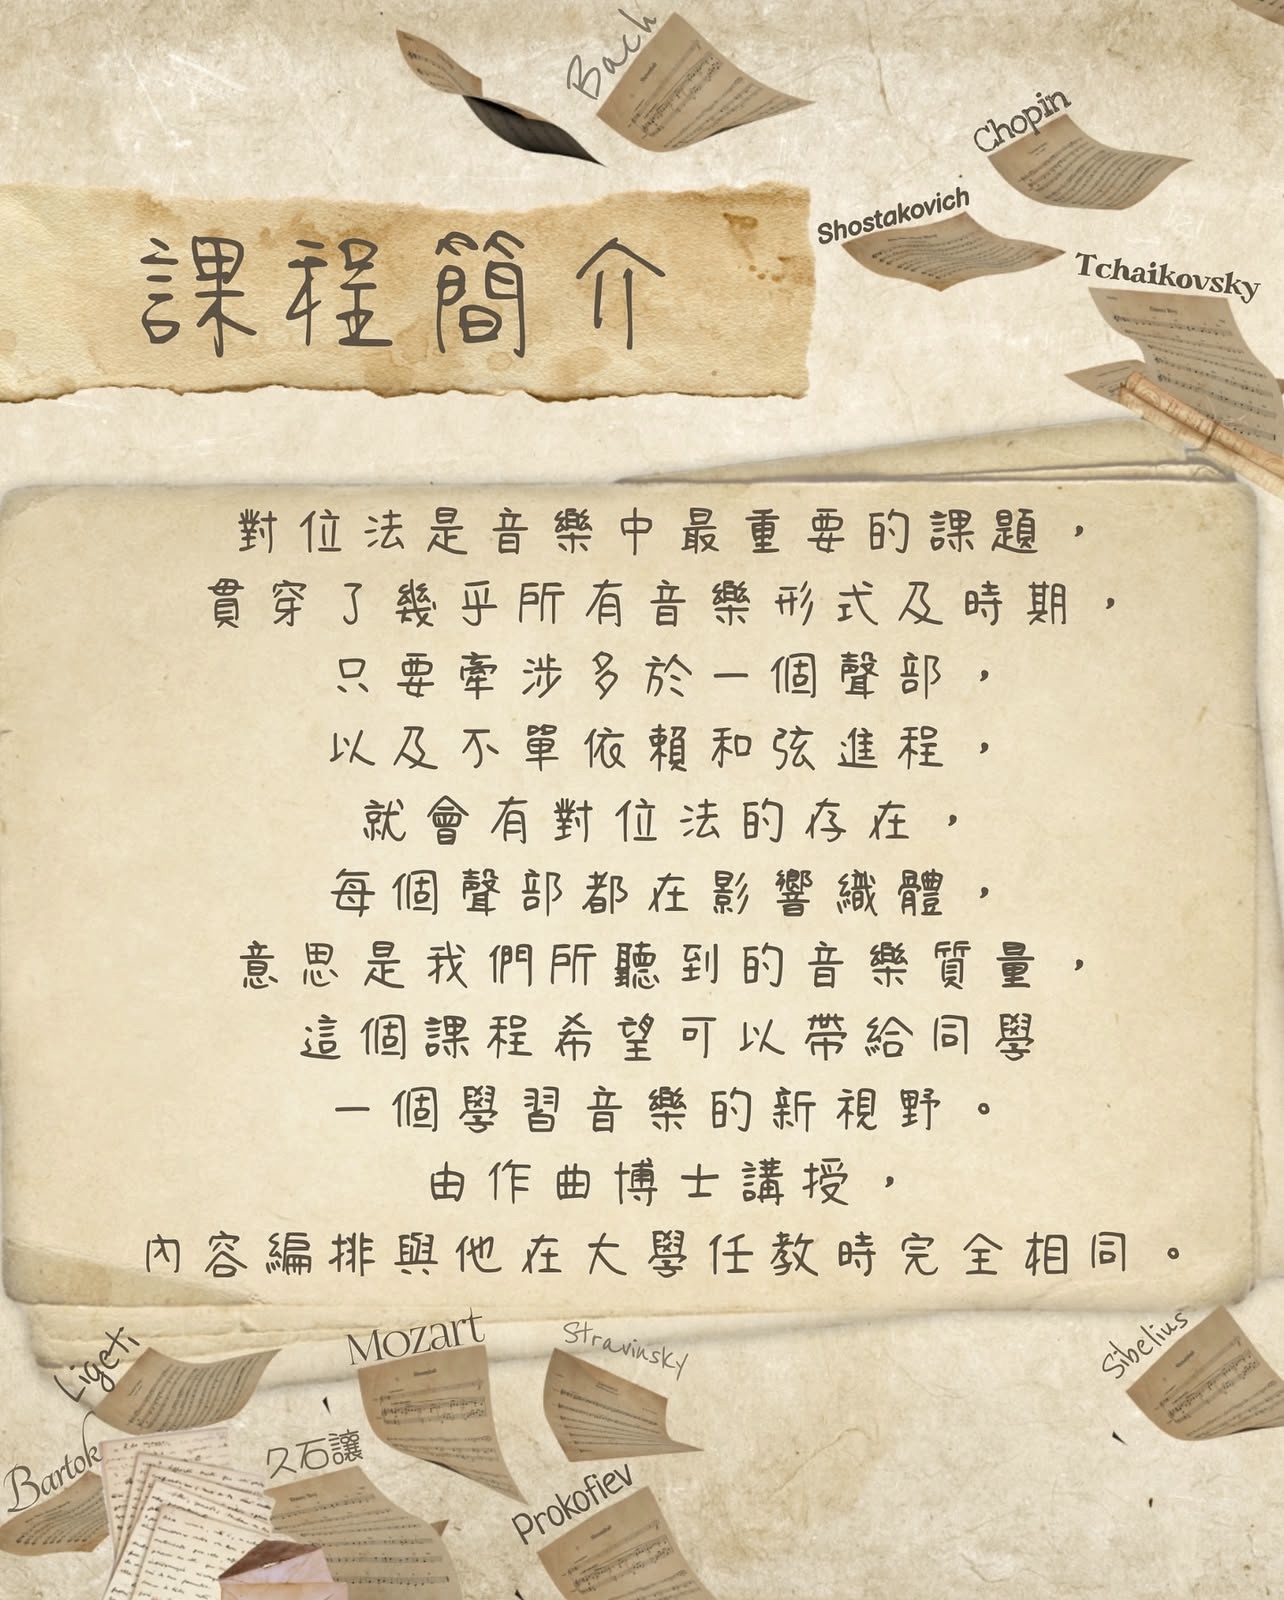 Bach
Chopin
Shostakovich
Tchaikovsky
課程簡介
對位法是音樂中最重要的課題，
貫穿了幾乎所有音樂形式及時期，
只要牽涉多於一個聲部，
以及不單依賴和弦進程，
就會有對位法的存在，
每個聲部都在影響織體，
意思是我們所聽到的音樂質量，
這個課程希望可以帶給同學
一個學習音樂的新視野。
由作曲博士講授，
內容編排與他在大學任教時完全相同。
Ligeti
Mozart
Stravinsky
Sibelius
Bartok
久石讓
Prokofiev